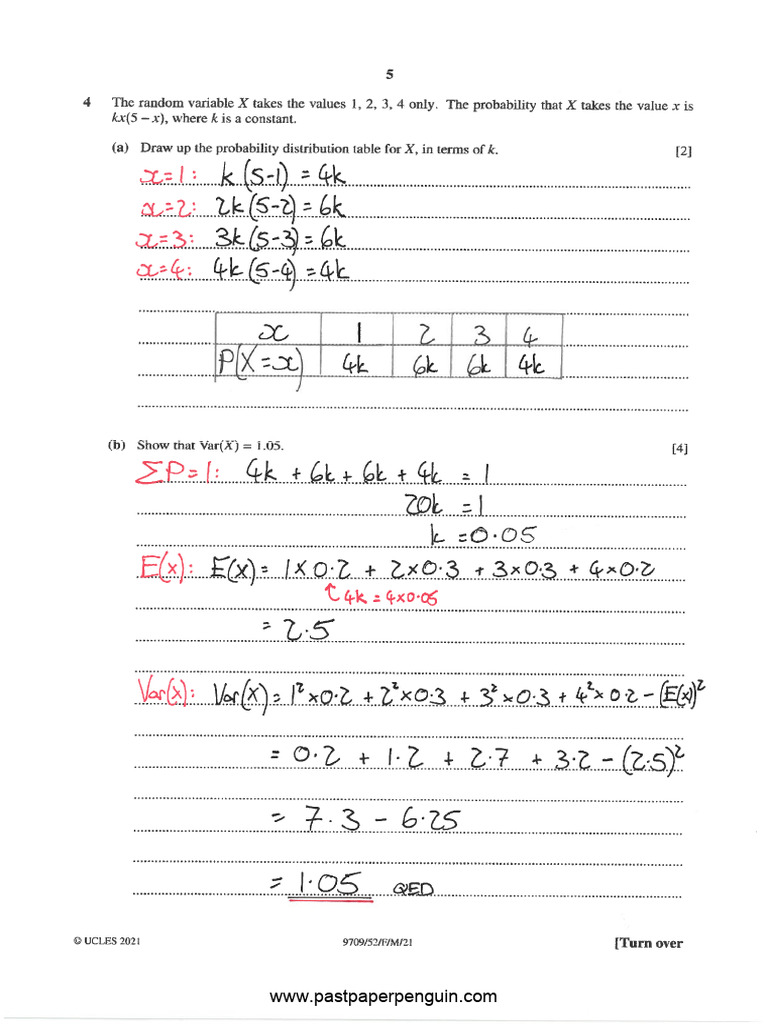 5
4 The random variable X takes the values 1, 2, 3, 4 only. The probability that X takes the value x is
kx(5 – x), where k is a constant.
(a) Draw up the probability distribution table for X, in terms of k. [2]
x=1: k(5-1) = 4k
x=2: 2k(5-2) = 6k
x=3: 3k(5-3) = 6k
x=4: 4k(5-4) = 4k
x 1 2 3 4
P(X=x) 4k 6k 6k 4k
(b) Show that Var(X) = 1.05. [4]
ΣP=1: 4k + 6k + 6k + 4k = 1
20k = 1
k = 0.05
E(x): E(x) = 1×0.2 + 2×0.3 + 3×0.3 + 4×0.2
↑4k = 4×0.05
= 2.5
Var(x): Var(X) = 1²×0.2 + 2²×0.3 + 3²×0.3 + 4²×0.2 - (E(x))²
= 0.2 + 1.2 + 2.7 + 3.2 - (2.5)²
= 7.3 - 6.25
= 1.05 QED
© UCLES 2021 9709/52/F/M/21 [Turn over
www.pastpaperpenguin.com